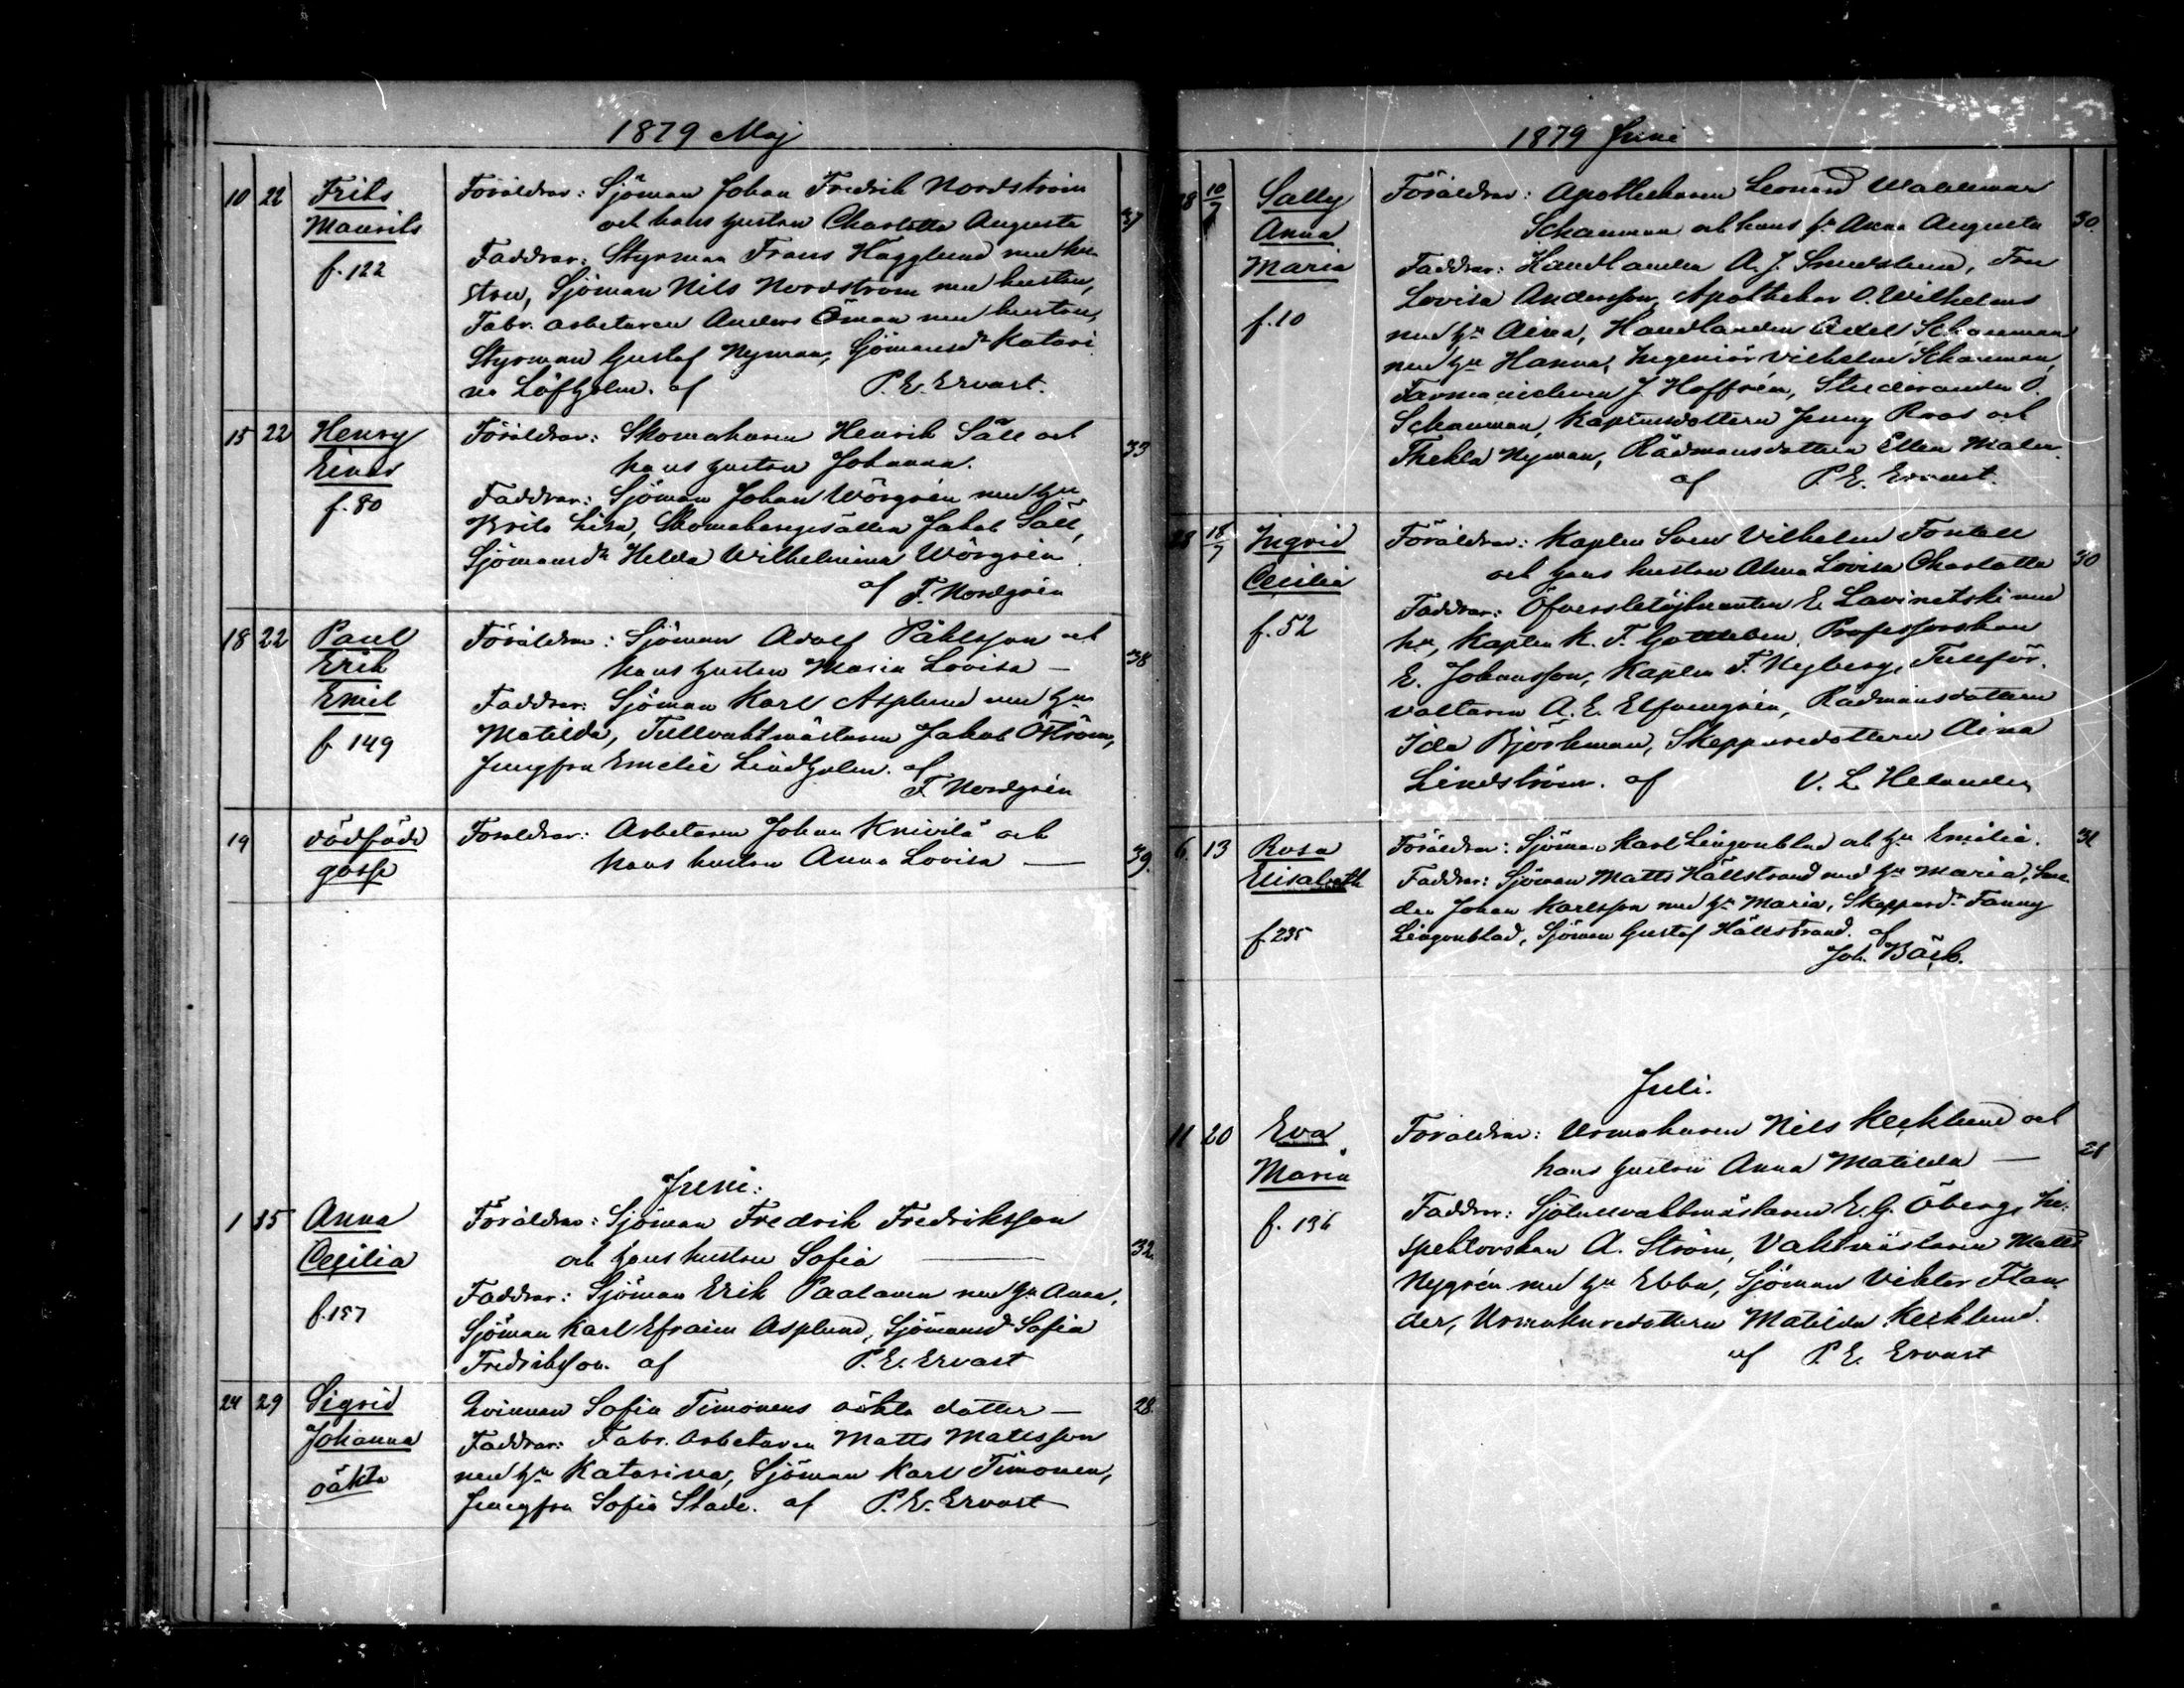 1879 Maj
10 22 Frits Föräldrar: Sjöman Johan Fredrik Nordström
Maurits och hans hustru Charlotta Augusta 37
f. 122 Faddrar: Styrman Frans Hägglund med hu-
stru, Sjöman Nils Nordström med hustru,
Fabr. arbetaren Anders Öman med hustru,
Styrman Gustaf Nyman, Sjömansdr Katari
na Löfholm. af P. E. Ervast.
15 22 Henry Föräldrar: Skomakaren Henrik Säll och 33
Einar hans hustru Johanna.
f. 80 Faddrar: Sjöman Johan Wörgrén med hu
Brita Lisa, Skomakaregesällen Jakob Säll,
Sjömansdr Hilda Wilhelmina Wörgrén
af F. Nordgrén
18 22 Paul Föräldrar: Sjöman Adolf Påhlsson och
Erik hans hustru Maria Lovisa — 38
Emil Faddrar: Sjöman Karl Asplund med hu
f. 149 Matilda, Tullvaktmästaren Jakob Öström,
Jungfru Emelie Lindholm. af
F. Nordgrén
19 dödfödd Föräldrar: Arbetaren Johan Knivilä och
gosse hans hustru Anna Lovisa — 39.
Juni.
1 15 Anna Föräldrar: Sjöman Fredrik Fredriksson
Cecilia och hans hustru Sofia — 32
f. 157 Faddrar: Sjöman Erik Paalanen med hu Anna,
Sjöman Karl Efraim Asplund, Sjömansd Sofia
Fredriksson. af P. E. Ervast
24 29 Sigrid Qvinnan Sofia Timonens oäkta dotter — 28
Johanna Faddrar: Fabr. arbetaren Matts Mattsson
oäkta med hu Katarina, Sjöman Karl Timonen,
Jungfru Sofia Stade. af P. E. Ervast
1879 Juni
28 10/7 Sally Föräldrar: Apothekaren Leonard Waldemar
Anna Schauman och hans hu Anna Augusta 30.
Maria Faddrar: Handlanden A. J. Snedslund, Fru
f. 10 Lovisa Andersson, Apothekar O. Wilhelms
med hu Aina, Handlanden Axel Schauman
med hu Hanna, Ingeniör Vilhelm Schauman,
Farmaceuten J. Hoffrén, Studeranden O.
Schauman, Kaptensdottern Jenny Roos och
Thekla Nyman, Rådmansdottern Ellen Malm.
af P. E. Ervast.
28 18/7 Ingrid Föräldrar: Kapten Sven Vilhelm Fontell
Cecilia och hans hustru Alma Lovisa Charlotta 30
f. 52 Faddrar: Öfverstelöjtnanten E. Lavinetski med
hu, Kapten K. F. Gottleben, Professorskan
E. Johansson, Kapten F. Nyberg, Tullför-
valtaren A. E. Elfvengrén, Rådmansdottern
Ida Björkman, Skepparedottern Aina
Lindström. af V. L. Helander
6 13 Rosa Föräldrar: Sjöman Karl Lingonblad och hu Emilia. 31
Elisabeth Faddrar: Sjöman Matts Hällstrand med hu Maria, Sme-
den Johan Karlsson med hu Maria, Skeppared. Fanny
f. 235 Lingonblad, Sjöman Gustaf Hällstrand. af
Joh. Bäck.
Juli.
11 20 Eva Föräldrar: Urmakaren Nils Kecklund och
Maria hans hustru Anna Matilda — 21
f. 136 Faddrar: Sjötullvaktmästaren E. G. Öberg, In-
spektorskan A. Ström, Vaktmästaren Matts
Nygrén med hu Ebba, Sjöman Viktor Flan-
der, Urmakaredottern Matilda Kecklund.
af P. E. Ervast